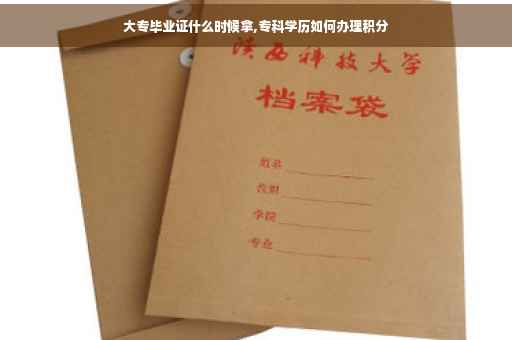 大专毕业证什么时候拿,专科学历如何办理积分
陕西科技大学
档案袋
姓名
学院
专业